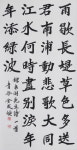 雨歇長堤草色多送
君南浦動悲歌大同
江水何時盡別淚年
年添綠波